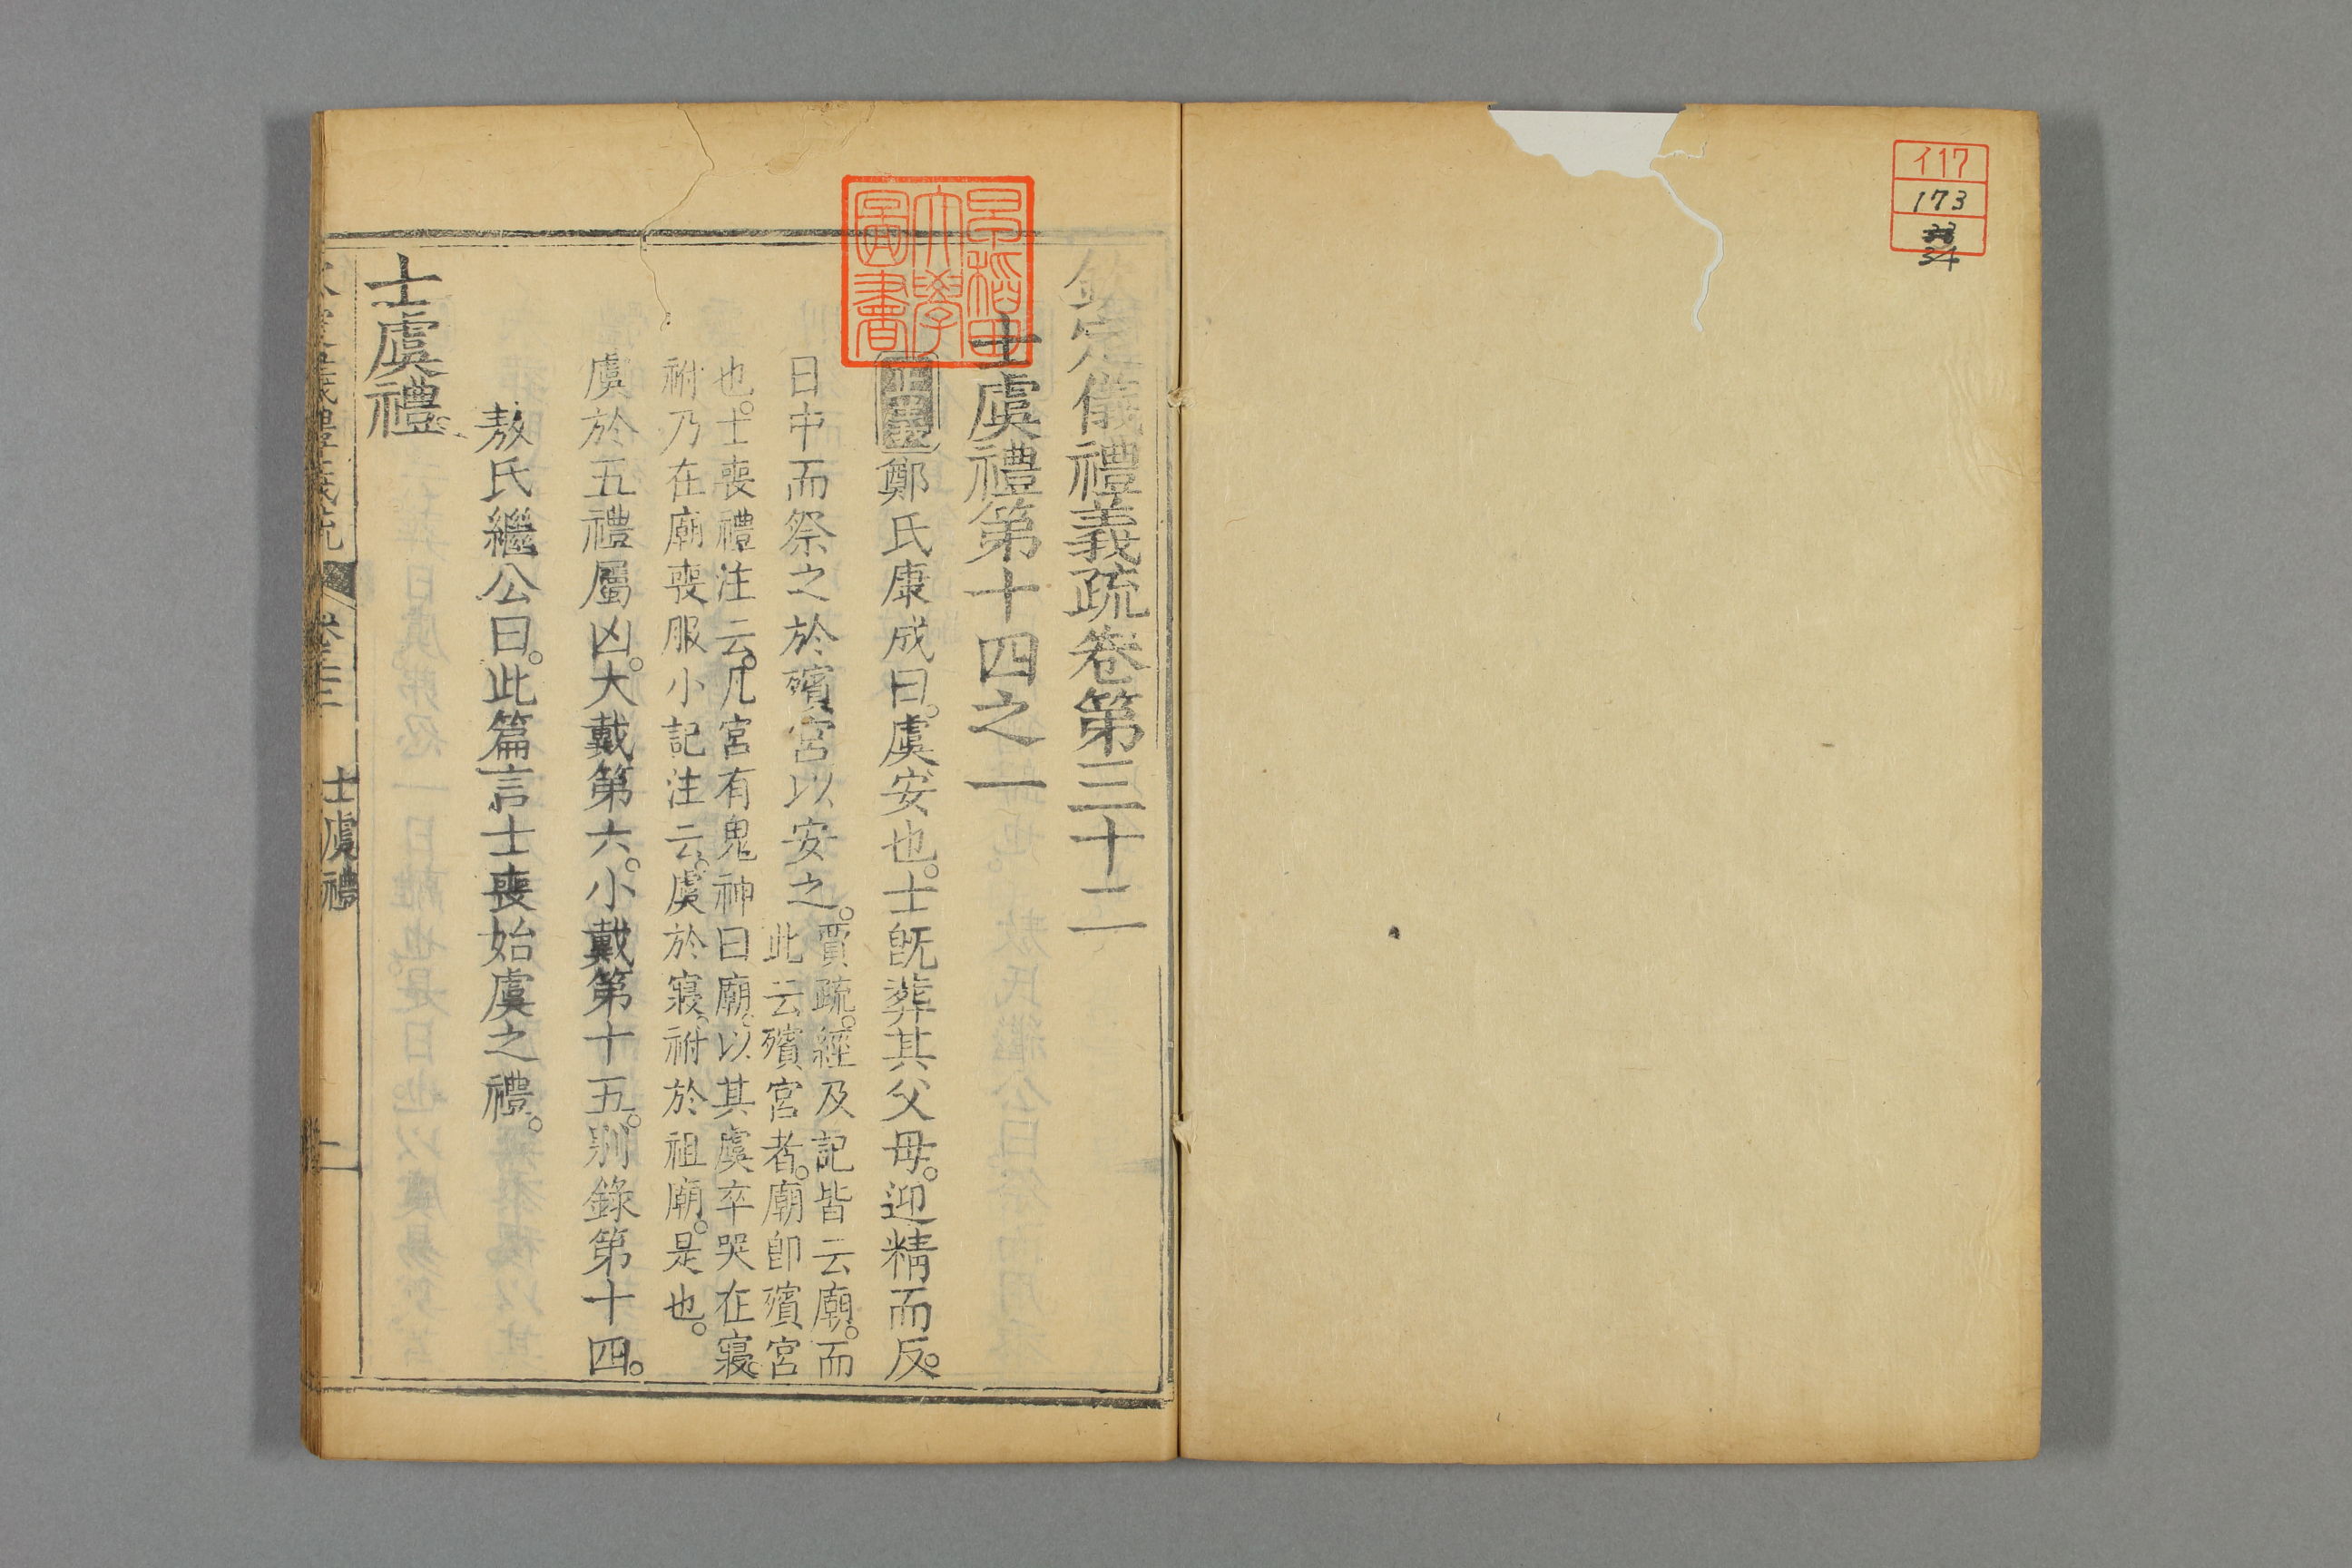 イ17
173
34
早稲田
大學
圖書
欽定儀禮義疏卷第三十二
士虞禮第十四之一
正義鄭氏康成曰。虞安也。士旣葬其父母。迎精而反。
日中而祭之於殯宮以安之。
賈疏。經及記皆云廟。而
此云殯宮者。廟卽殯宮
也。士喪禮注云。凡宮有鬼神曰廟。以其虞卒哭在寢。
祔乃在廟。喪服小記注云。虞於寢。祔於祖廟。是也。
虞於五禮屬凶。大戴第六。小戴第十五。別錄第十四。
敖氏繼公曰。此篇言士喪始虞之禮。
士虞禮。
士虞禮
一